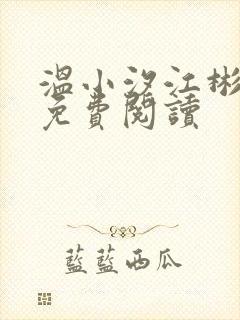 温小汐江彬
免費閱讀
藍藍西瓜